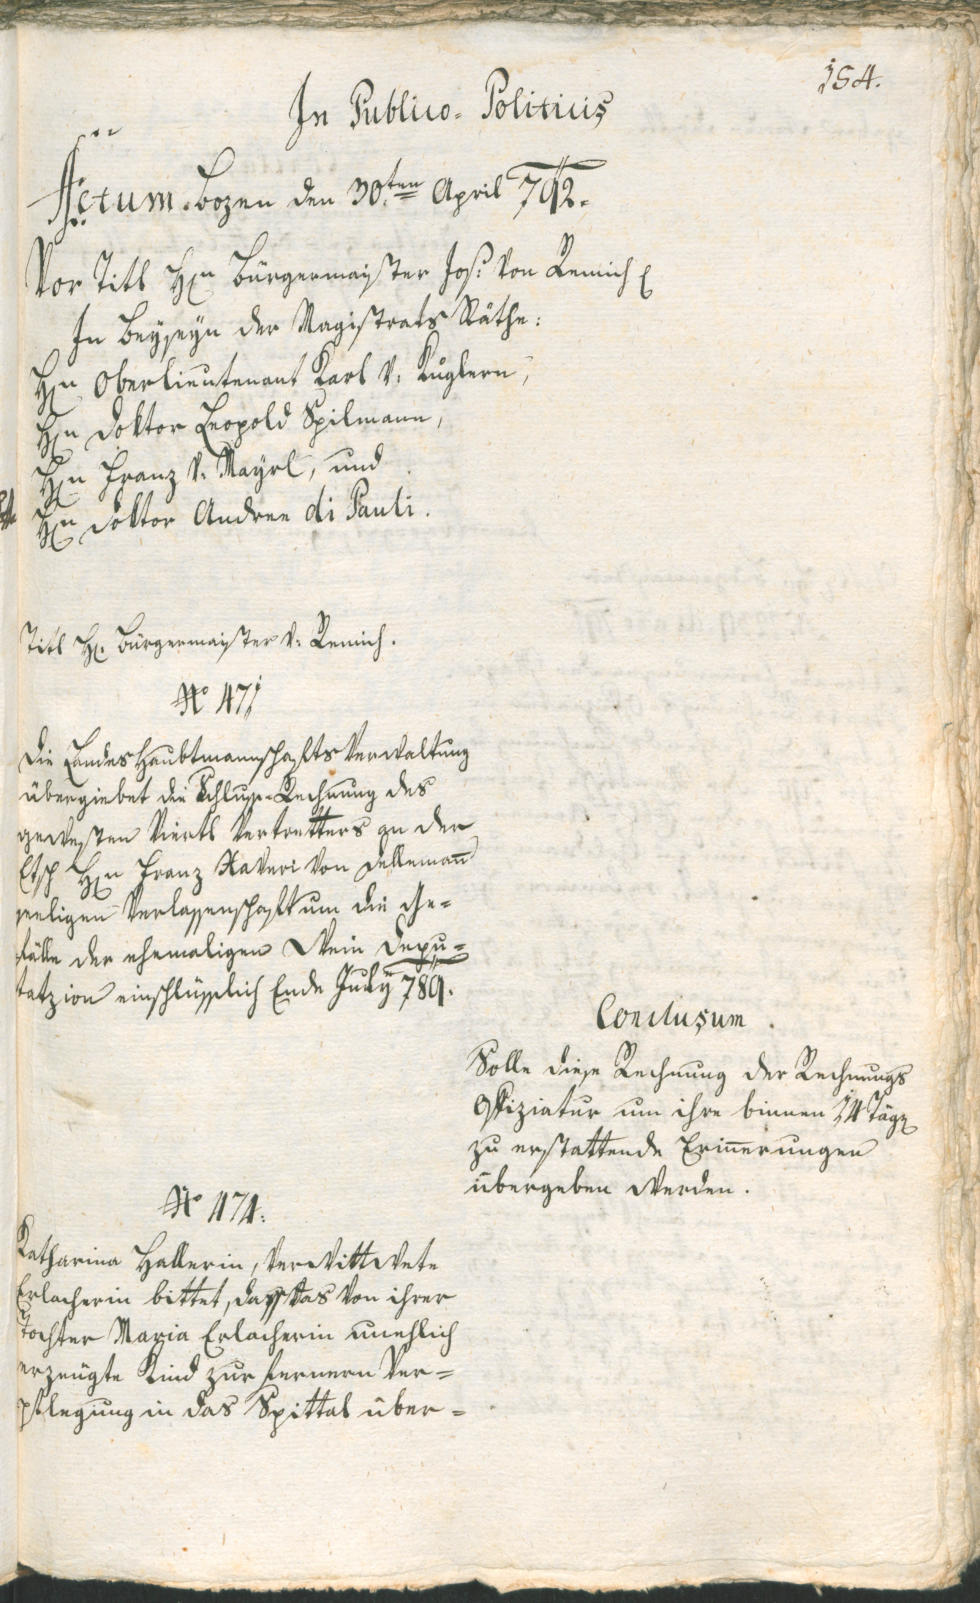 154.
In Publico-Politicis
Actum Bozen den 30.ten April 792.
Vor Titl Hn Bürgermaister Jos: von Remich
In Beyseyn der Magistrats Räthe:
Hn Oberlieutenant Karl v: Kuglern,
Hn Doktor Leopold Spilmann,
Hn Franz v: Mayrl, und
Hn Doktor Andree di Pauli.
Titl H: Bürgermaister v: Remich.
No 471
Die Landes Haubtmannschafts Verwaltung
übergiebet die Schluss-Rechnung des
gewesten Viertl Vertretters an der
Etsch Hn Franz Xaveri von Dellemañ
seeligen Verlassenschaft um die Ge=
fälle der ehemaligen Wein Depu=
tatzion einschlüsslich Ende July 789.
Conclusum.
Solle diese Rechnung der Rechnungs
Offiziatur um ihre binnen 14 Täg
zu erstattende Eriñerungen
übergeben werden.
No 474.
Katharina Hallerin, verwittwete
Erlacherin bittet, dass das von ihrer
Tochter Maria Erlacherin unehlich
erzeugte Kind zur fernern Ver=
pflegung in das Spittal über=